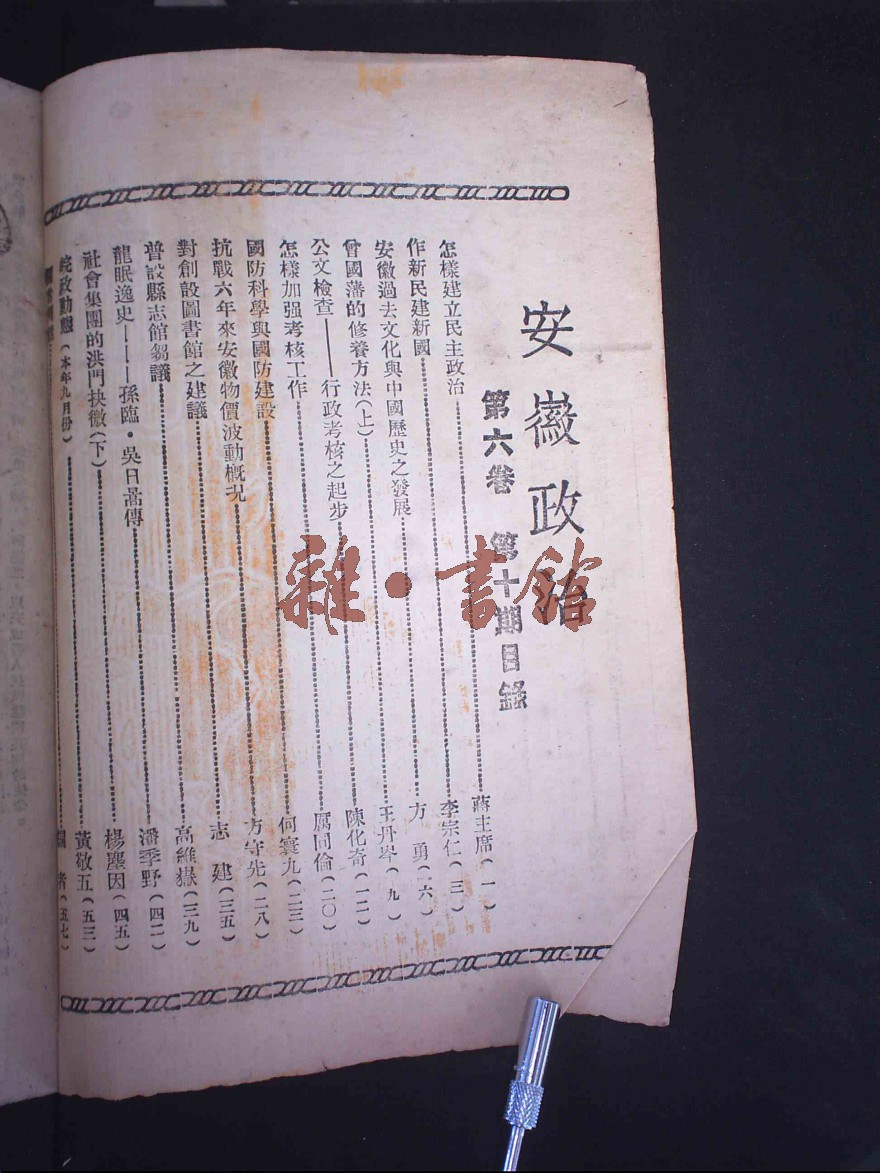 安徽政治
第六卷 第十期目錄
怎樣建立民主政治 蔣主席(一)
作新民建新國 李宗仁(三)
安徽過去文化與中國歷史之發展 方 勇(六)
曾國藩的修養方法(上) 王丹岑(九)
公文檢查——行政考核之起步 陳化奇(一二)
怎樣加强考核工作 厲同倫(二〇)
國防科學與國防建設 何寰九(二三)
抗戰六年來安徽物價波動概況 方守先(二八)
對創設圖書館之建議 志 建(三五)
普設縣志館芻議 高維嶽(三九)
龍眠逸史——孫臨·吳日䓘傳 潘季野(四二)
社會集團的洪門抉微(下) 楊塵因(四五)
皖政動態(本年九月份) 黃敬五(五三)
(五七)
雜·書館